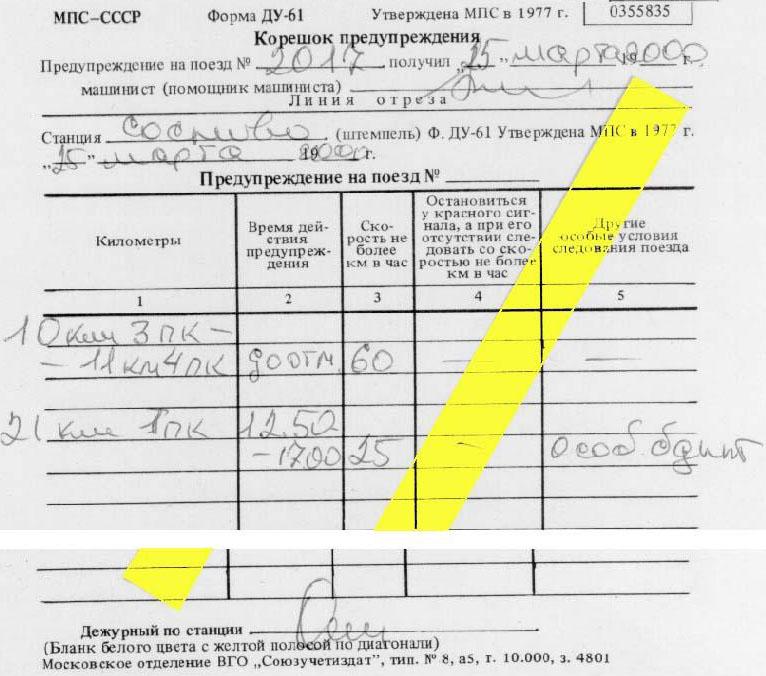 МПС–СССР Форма ДУ-61 Утверждена МПС в 1977 г. 0355835
Корешок предупреждения
Предупреждение на поезд № 2017 получил „25” марта 2000 19 г.
машинист (помощник машиниста)
Линия отреза
Станция (штемпель) Ф. ДУ-61 Утверждена МПС в 1977 г.
„25” марта 19 2000 г.
Предупреждение на поезд №
Километры
Время дей-
ствия
предупреж-
дения
Ско-
рость не
более
км в час
Остановиться
у красного сиг-
нала, а при его
отсутствии сле-
довать со ско-
ростью не более
км в час
Другие
особые условия
следования поезда
1 2 3 4 5
10 км 3 пк –
– 11 км 4 пк до отм. 60 — —
21 км 1 пк 12.50
– 17.00 25 – особ. бдит
Дежурный по станции
(Бланк белого цвета с желтой полосой по диагонали)
Московское отделение ВГО „Союзучетиздат”, тип. № 8, а5, г. 10.000, з. 4801